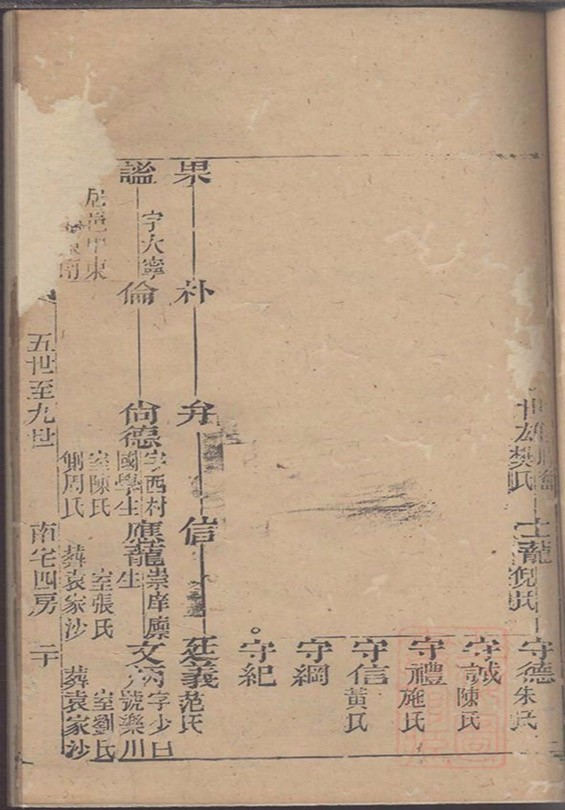 世雄樊氏
士龍倪氏
守德朱氏
守誠陳氏
守禮施氏
守信黃氏
守綱
守紀
果
朴
弁
信
廷義范氏
謐字大寧
倫
尚德字西村
國學生
室陳氏
側周氏
應龍崇庠廩
生
室張氏
葬袁家沙
字少日
號樂川
室劉氏
葬袁家沙
五世至九世
南宅四房
二十